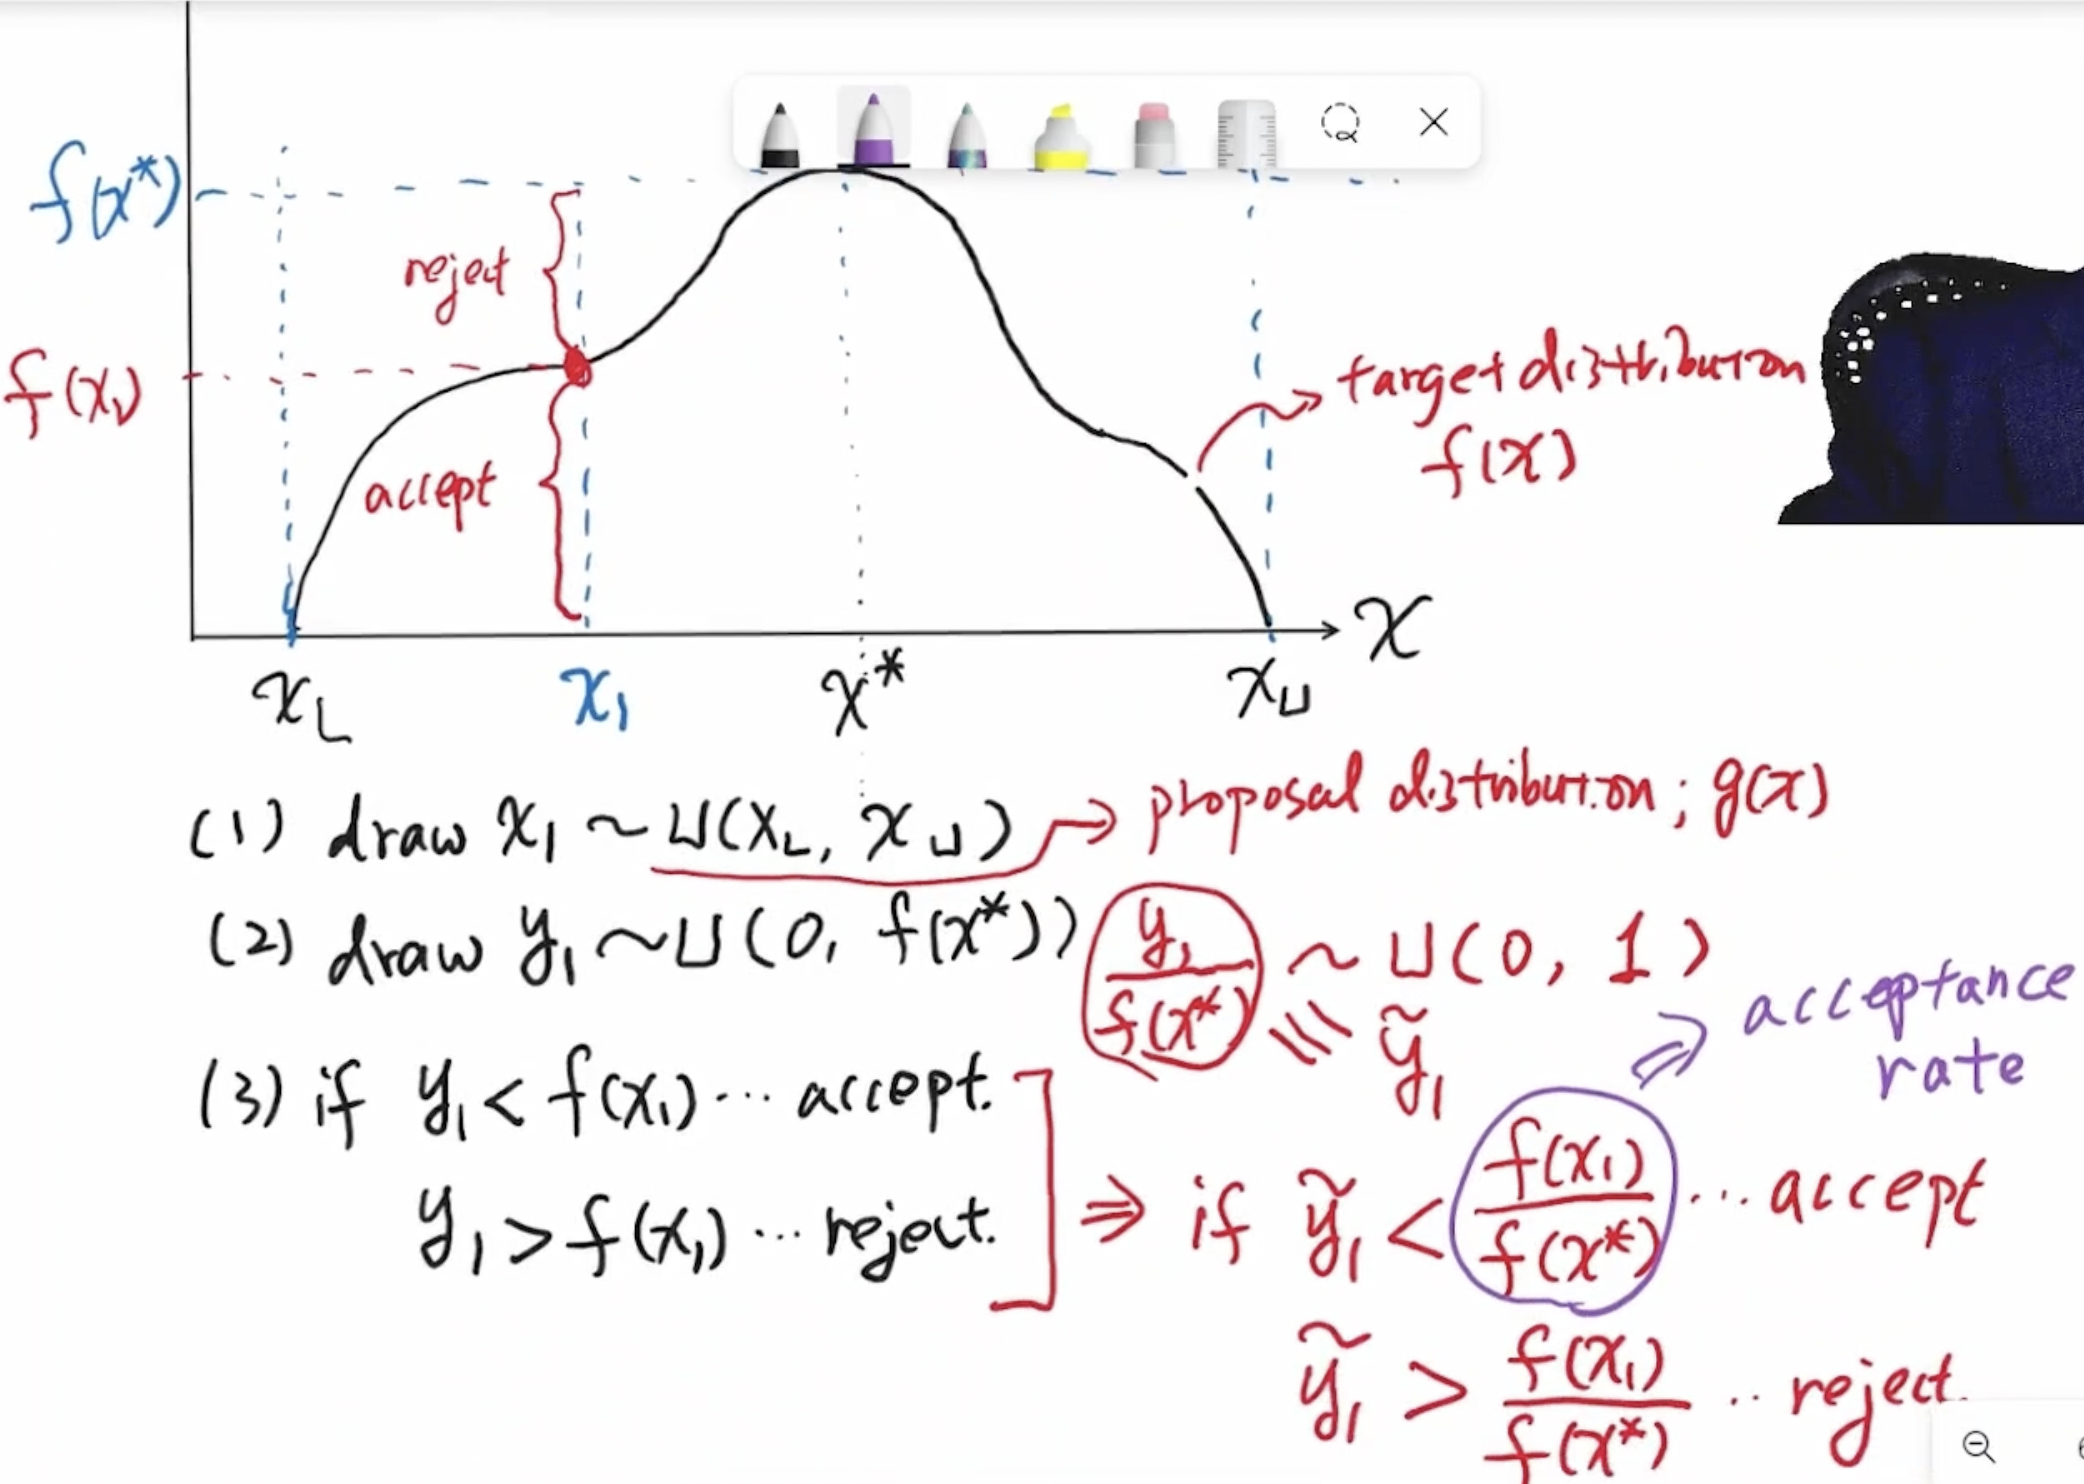 f(x*)
reject
f(x₁)
accept
target distribution
f(x)
x
x_L x₁ x* x_U
(1) draw x₁ ~ U(x_L, x_U) → proposal distribution; g(x)
(2) draw y₁ ~ U(0, f(x*)) y₁/f(x*) ~ U(0, 1)
≡ ỹ₁
acceptance
rate
(3) if y₁ < f(x₁) ... accept.
y₁ > f(x₁) ... reject.
⇒ if ỹ₁ < f(x₁)/f(x*) ... accept
ỹ₁ > f(x₁)/f(x*) .. reject.